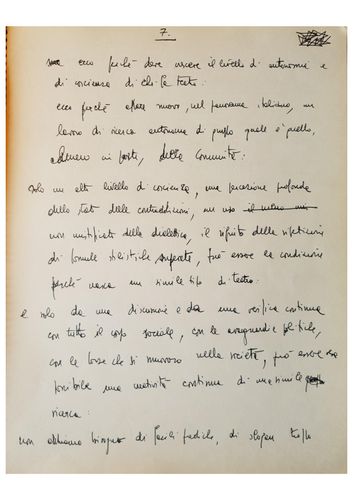 7.
ecco perché deve uscire il livello di autonomia e
di coscienza di chi fa teatro:
ecco perché nuovo, nel panorama italiano, un
lavoro di ricerca autonoma di gruppo quale è quello,
almeno in parte, della Comunità:
solo un alto livello di coscienza, una percezione profonda
dello stato delle contraddizioni, un uso
non mistificato della dialettica, il rifiuto della ripetizione
di formule stilistiche superate, può essere la condizione
perché nasca un simile tipo di teatro:
e solo da una discussione e da una verifica continua
con tutto il corpo sociale, con le avanguardie politiche,
con le forze che si muovono nella società, può essere
possibile una maturità continua di una simile
ricerca:
non abbiamo bisogno di facili prediche, di slogan